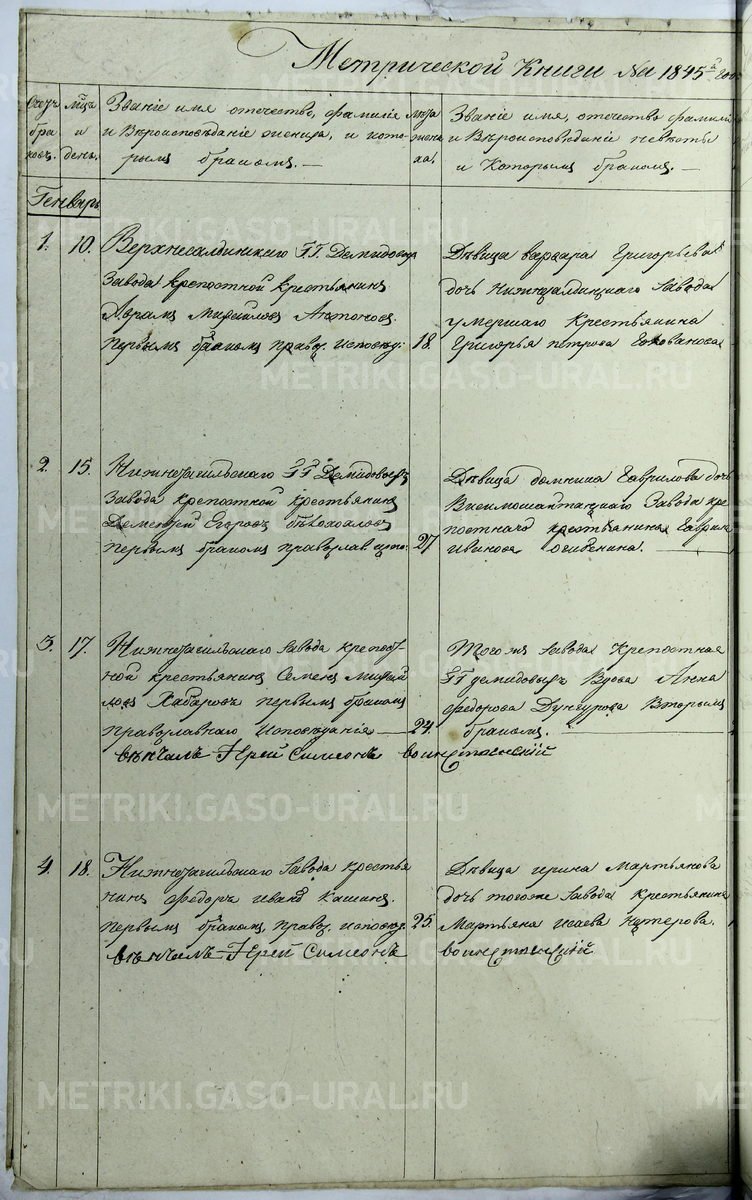 Метрической Книги На 1845й год
Счетъ бра ковъ.
М-ца и день.
Званіе имя отечество, фамилія
и Вѣроисповѣданіе жениха, и кото-
рымъ бракомъ. —
Лѣта жени ха.
Званіе имя, отечество фамилія
и Вѣроисповѣданіе невѣсты
и Которымъ бракомъ. —
Генварь
1. 10. Верхнесалдинскаго ГГ. Демидовыхъ
завода крепостной крестьянинъ
Аврамъ Михайловъ Антоновъ.
первымъ бракомъ правос. исповѣд: 18.
Дѣвица варвара Григорьева
дочь Нижнесалдинскаго завода
умершаго Крестьянина
Григорья петрова Голованова
2. 15. Нижнетагильскаго ГГ Демидовыхъ
завода крепостной крестьянинъ
Дементей Егоровъ
первымъ браком православ. 27
Дѣвица домнина Гаврилова дочь
Висимошайтанскаго Завода кре
постнаго крестьянина Гаврила
Иванова
3. 17. Нижнетагильскаго завода крепост
ной крестьянинъ Семенъ Михай
ловъ Хабаровъ первымъ бракомъ
Православнаго Исповѣданія 24.
Того жъ завода Крепостная
ГГ демидовыхъ Вдова Анна
Федорова Дунгурова Вторымъ
бракомъ.
вѣнчалъ Іерей Симеонъ воинственскій
4. 18. Нижнетагильскаго Завода крестья
нинъ Федоръ Ивановъ Кашинъ.
первымъ бракомъ, правос. исповѣд. 25.
Дѣвица ирина Мартьянова
дочь тогоже завода Крестьянина
Мартьяна исаева
вѣнчалъ Іерей Симеонъ воинственскій
METRIKI.GASO-URAL.RU